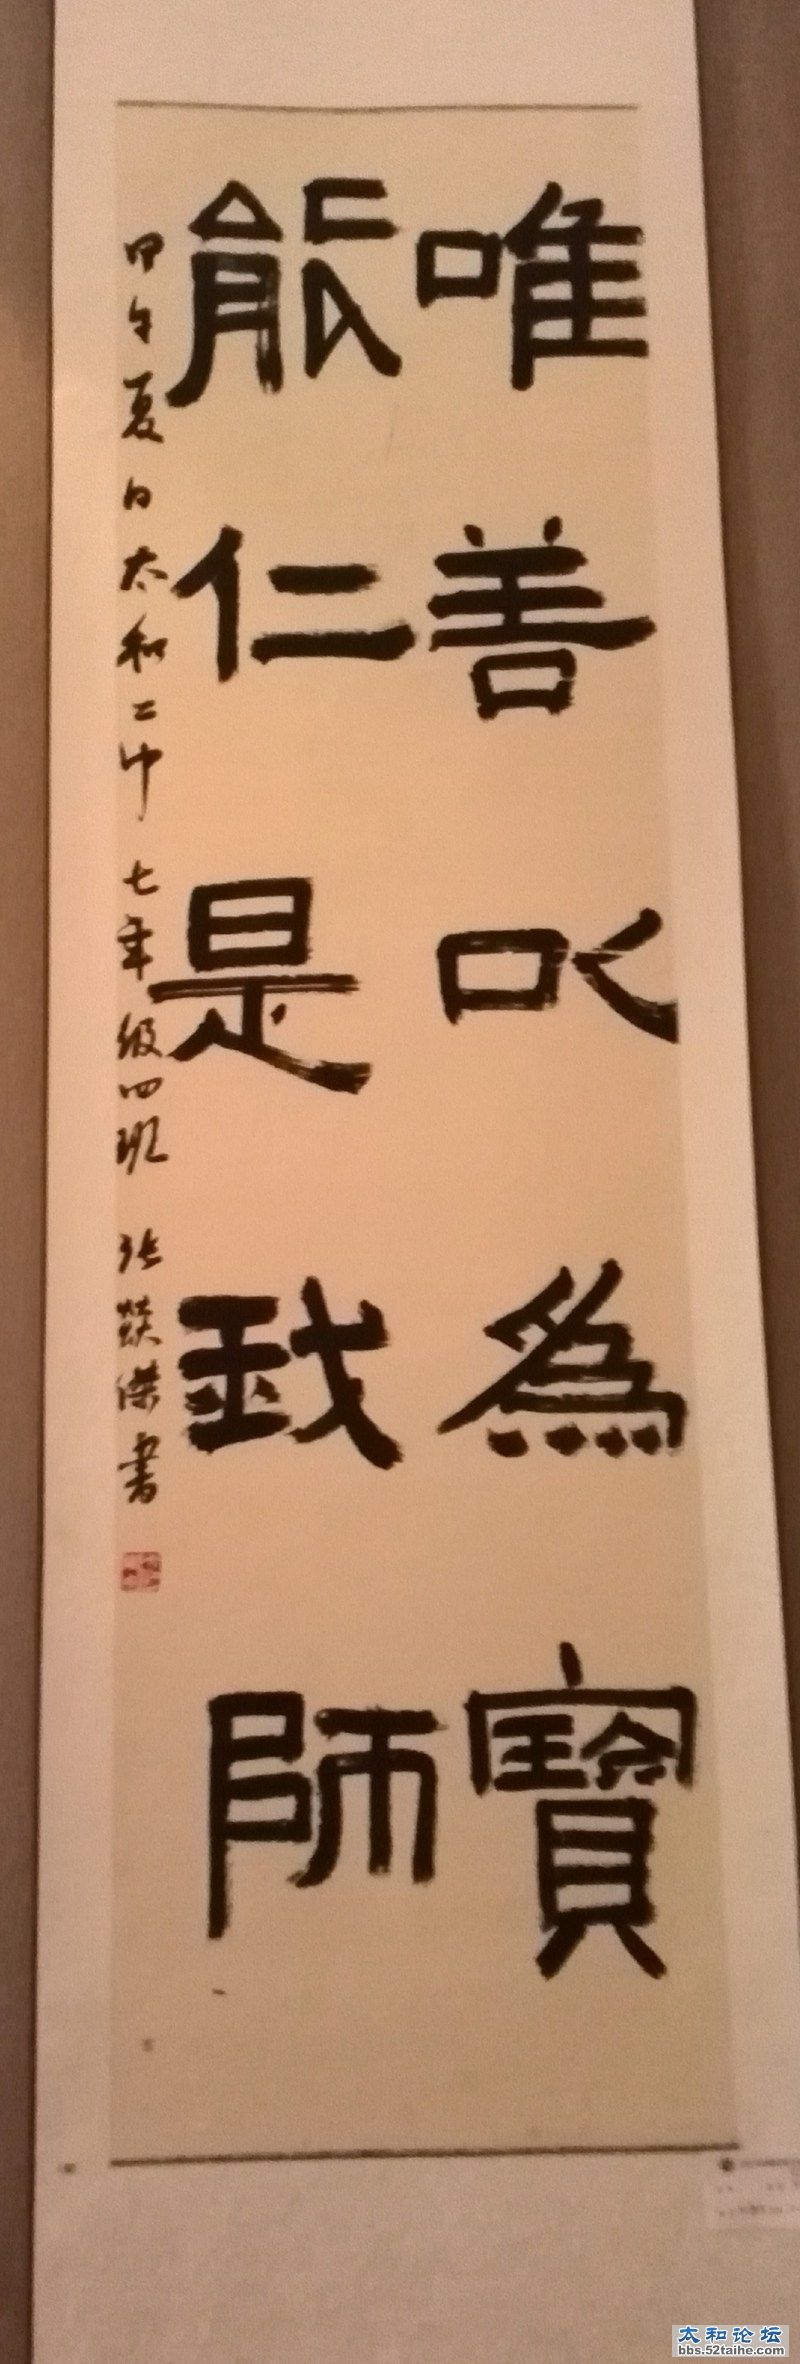 唯善以為寶
能仁是我師
甲午夏日太和二中七年級四班 張燚傑書
太和论坛
bbs.52taihe.com